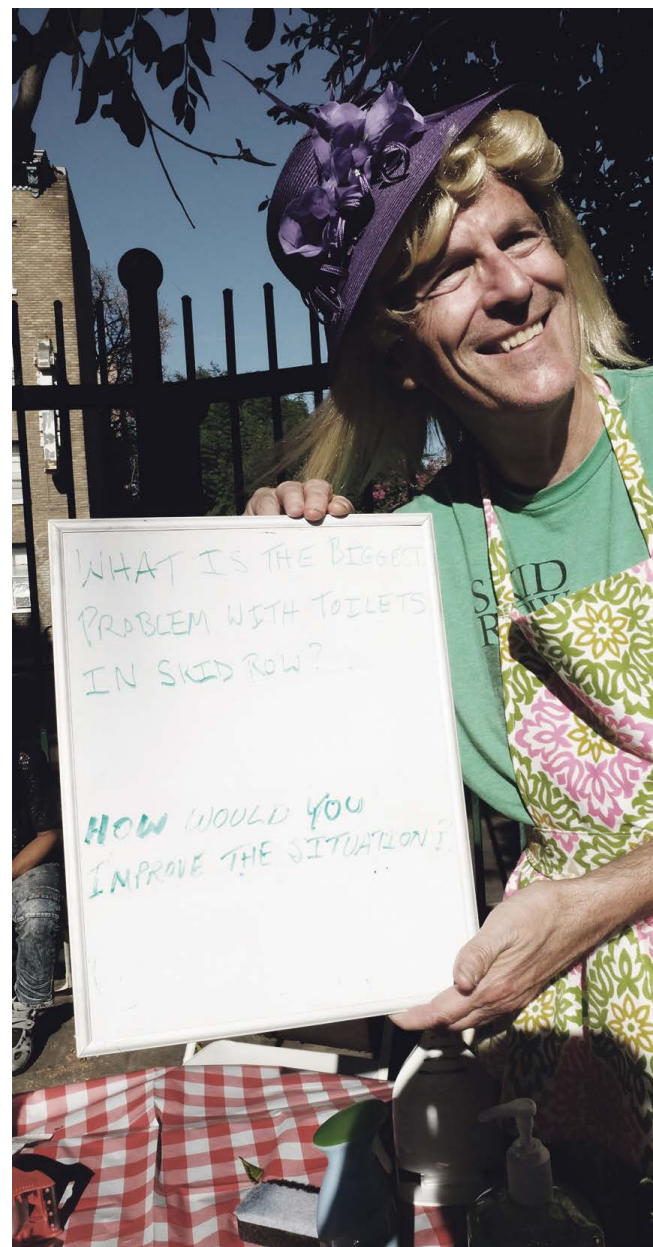 WHAT IS THE BIGGEST
PROBLEM WITH TOILETS
IN SKID ROW?
HOW WOULD YOU
IMPROVE THE SITUATION?
SKID
ROW